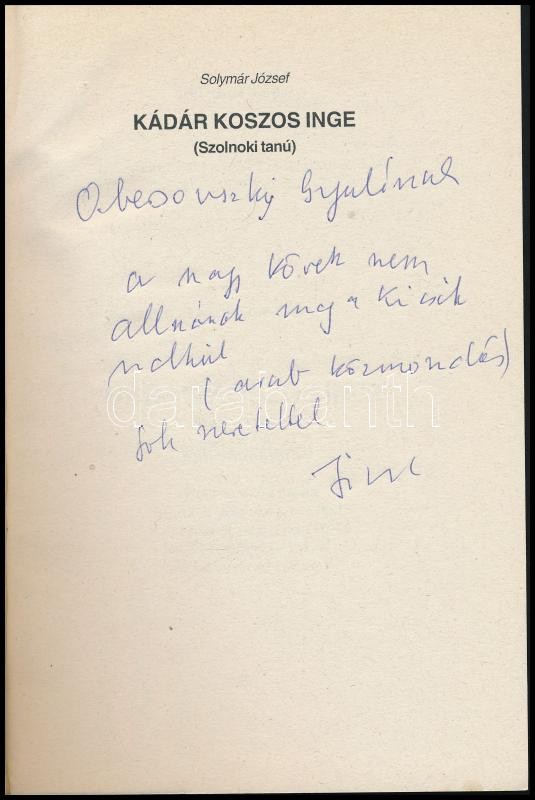 Solymár József
KÁDÁR KOSZOS INGE
(Szolnoki tanú)
Obersovszky Gyulának
a nagy kövek nem
állnának meg a kicsik
nélkül
(arab közmondás)
darabanth
sok szeretettel